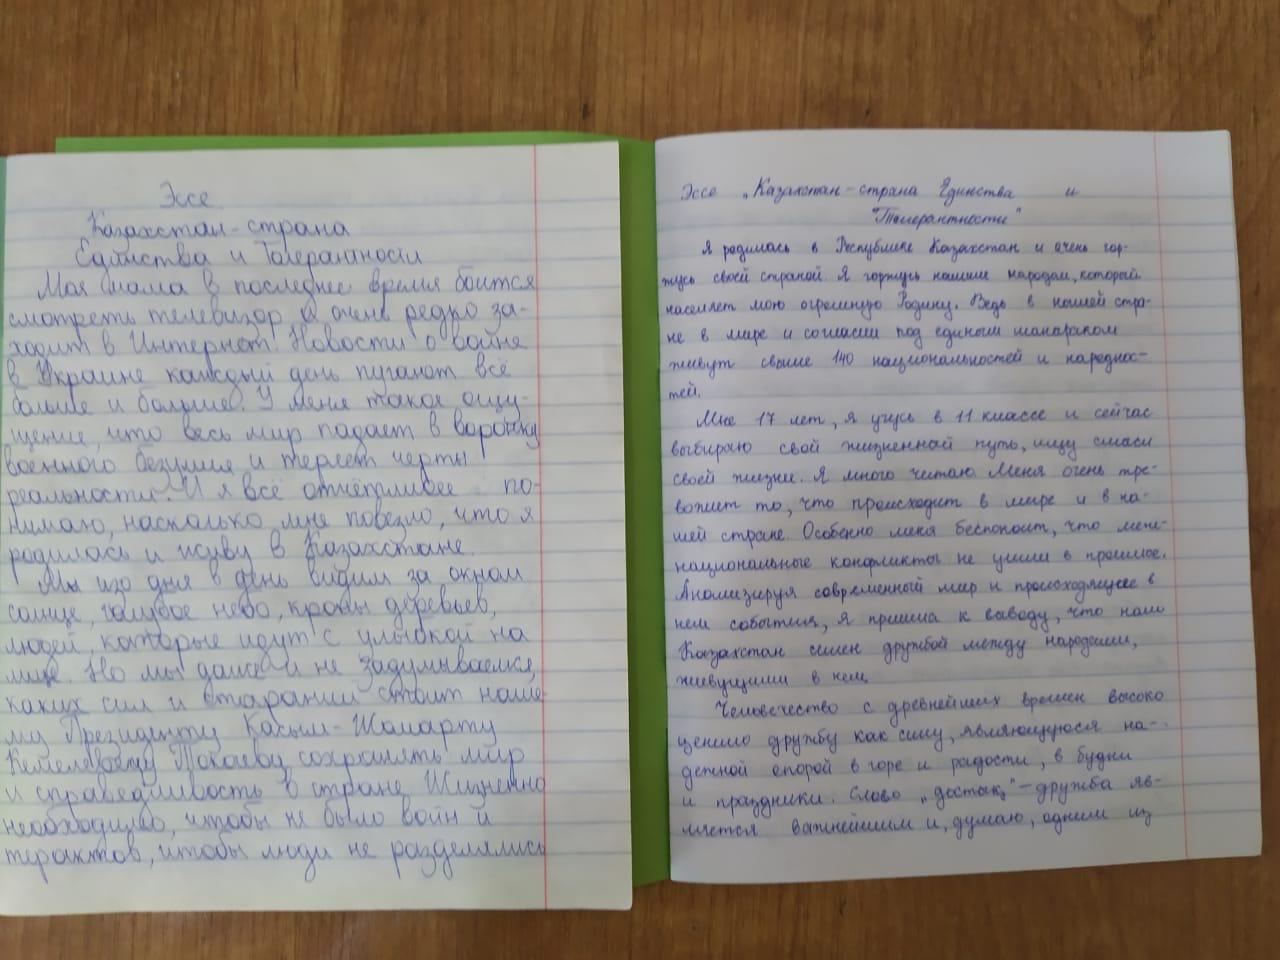 Эссе
Казахстан-страна
Единства и Толерантности
Моя мама в последнее время боится
смотреть телевизор и очень редко за-
ходит в Интернет. Новости о войне
в Украине каждый день пугают всё
больше и больше. У меня такое ощу-
щение, что весь мир падает в воронку
военного безумия и теряет черты
реальности. И я всё отчётливее по-
нимаю, насколько мне повезло, что я
родилась и живу в Казахстане.
Мы изо дня в день видим за окном
солнце, голубое небо, кроны деревьев,
людей, которые идут с улыбкой на
лице. Но мы даже и не задумываемся,
каких сил и стараний стоит наше-
му Президенту Касым-Жомарту
Кемелевичу Токаеву сохранять мир
и справедливость в стране. Жизненно
необходимо, чтобы не было войн и
терактов, чтобы люди не разделялись
Эссе „Казахстан-страна Единства и
Толерантности"
Я родилась в Республике Казахстан и очень гор-
жусь своей страной. Я горжусь нашим народом, который
населяет мою огромную Родину. Ведь в нашей стра-
не в мире и согласии под единым шаныраком
живут свыше 140 национальностей и народнос-
тей.
Мне 17 лет, я учусь в 11 классе и сейчас
выбираю свой жизненный путь, ищу смысл
своей жизни. Я много читаю. Меня очень тре-
вожит то, что происходит в мире и в на-
шей стране. Особенно меня беспокоит, что меж-
национальные конфликты не ушли в прошлое.
Анализируя современный мир и происходящие в
нем события, я пришла к выводу, что наш
Казахстан силен дружбой между народами,
живущими в нем.
Человечество с древнейших времен высоко
ценило дружбу как силу, являющуюся на-
дежной опорой в горе и радости, в будни
и праздники. Слово „достық"-дружба яв-
ляется важнейшим и, думаю, одним из